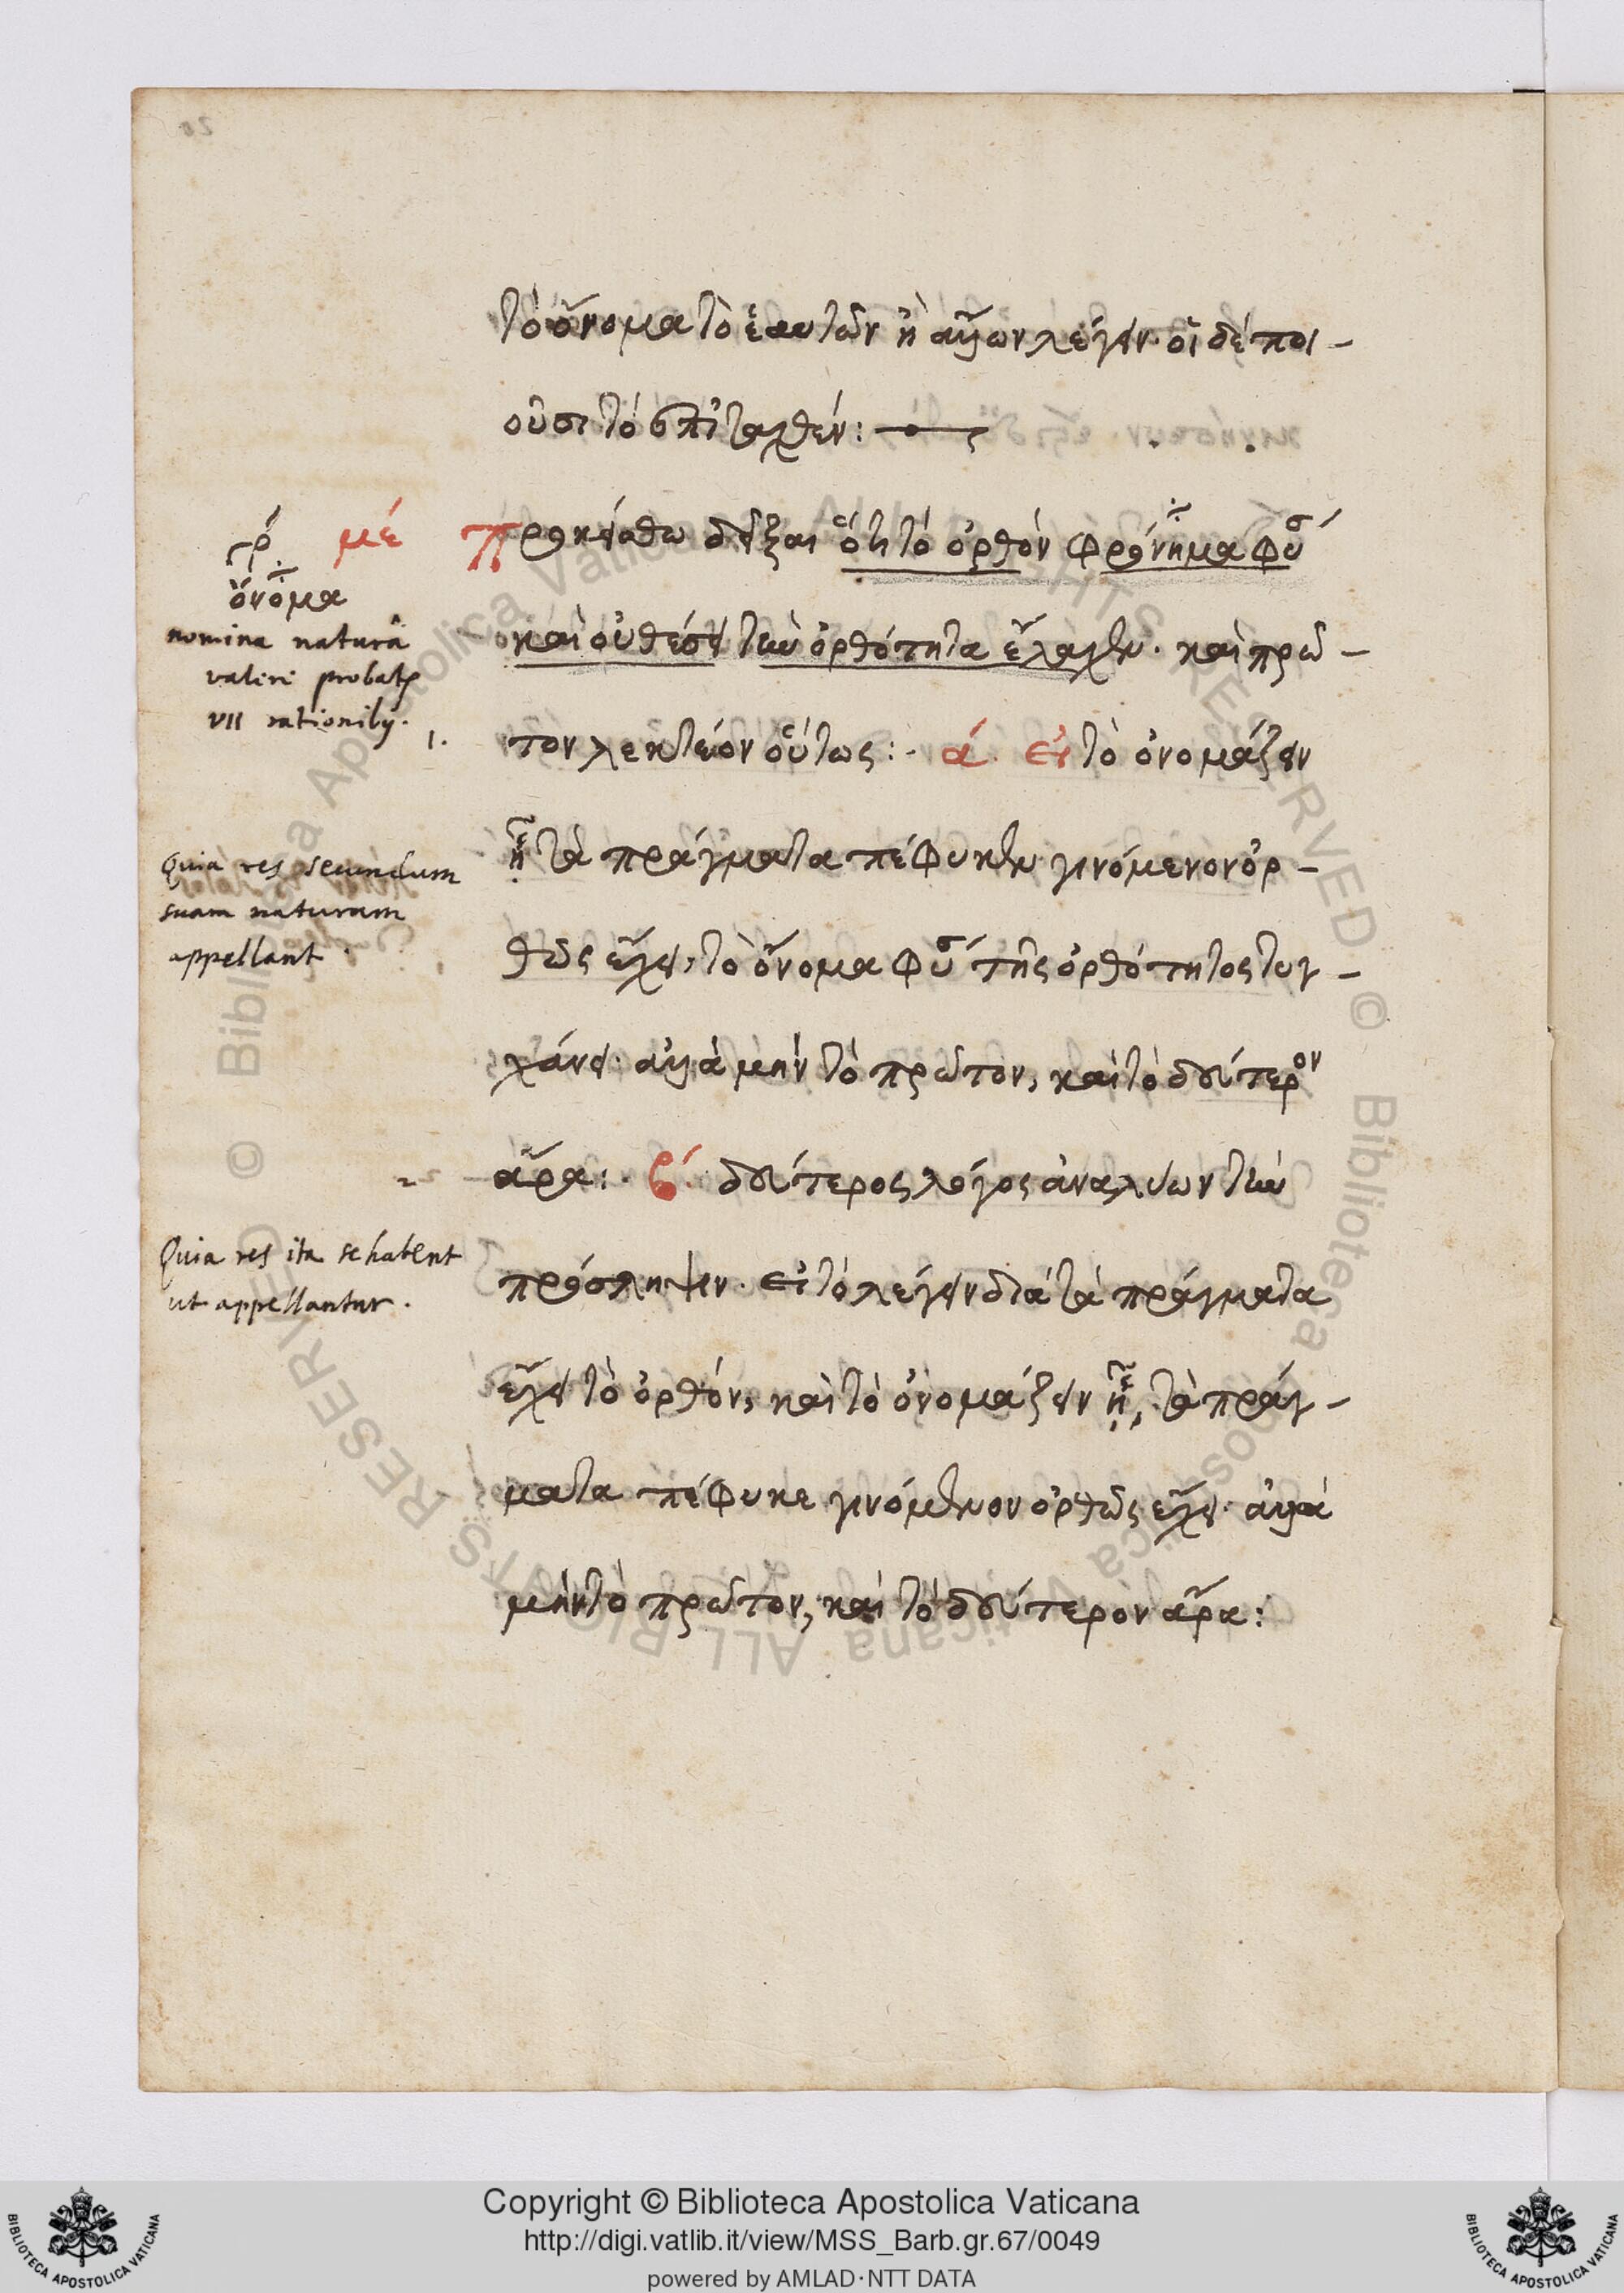 τὸ ὄνομα τὸ ἑαυτῶν ἢ ἄλλων λέγειν· οἱ δὲ ποι-
οῦσι τὸ ἐπιταχθέν:
γρ. ὄνομα
με Προκείσθω δεῖξαι ὅτι τὸ ὀρθὸν φρόνημα φύσ
καὶ οὐ θέσει τὴν ὀρθότητα ἔλαχεν· καὶ πρῶ-
nomina naturâ
valere probatr
VII rationibus.
1.
τον λεκτέον οὕτως:· ά. εἰ τὸ ὀνομάζειν
Quia res secundum
suam naturam
appellant
ᾗ τὰ πράγματα πέφυκεν γινόμενον ὀρ-
θῶς ἔχει, τὸ ὄνομα φύσ τῆς ὀρθότητος τυγ-
χάνει· ἀλλὰ μὴν τὸ πρῶτον, καὶ τὸ δεύτερον
2
ἄρα:· β́. δεύτερος λόγος ἀναλύων τὴν
Quia res ita se habent
ut appellantur.
πρόσληψιν· εἰ τὸ λέγειν διὰ τὰ πράγματα
ἔχει τὸ ὀρθόν, καὶ τὸ ὀνομάζειν ᾗ, τὰ πράγ-
ματα πέφυκε γινόμενον ὀρθῶς ἔχει· ἀλλὰ
μὴν τὸ πρῶτον, καὶ τὸ δεύτερον ἄρα:
Copyright © Biblioteca Apostolica Vaticana
http://digi.vatlib.it/view/MSS_Barb.gr.67/0049
powered by AMLAD·NTT DATA
BIBLIOTECA APOSTOLICA VATICANA
BIBLIOTECA APOSTOLICA VATICANA
© Biblioteca Apostolica Vaticana ALL RIGHTS RESERVED © Biblioteca Apostolica Vaticana ALL RIGHTS RESERVED